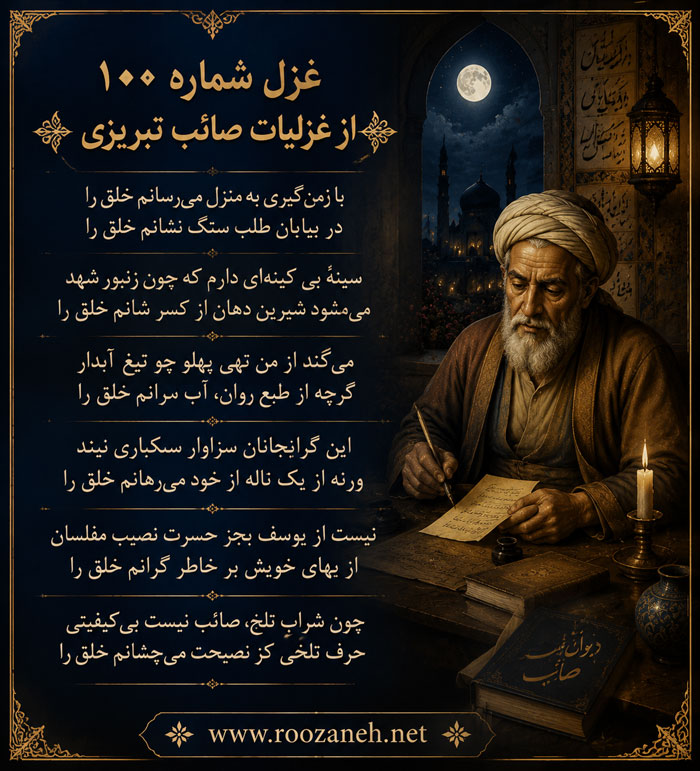 غزل شماره ۱۰۰
از غزلیات صائب تبریزی
با زمن‌گیری به منزل می‌رسانم خلق را
در بیابان طلب ستگ نشانم خلق را
سینهٔ بی کینه‌ای دارم که چون زنبور شهد
می‌مشود شیرین دهان از کسر شانم خلق را
می‌گند از من تهی پهلو چو تیغ آبدار
گرچه از طبع روان، آب سرانم خلق را
این گرانجانان سزاوار سبکباری نیند
ورنه از یک ناله از خود می‌رهانم خلق را
نیست از یوسف بجز حسرت نصیب مفلسان
از یهای خویش بر خاطر گرانم خلق را
چون شراب تلخ، صائب نیست بی‌کیفیتی
حرف تلخی کز نصیحت می‌چشانم خلق را
دیوان
صائب
www.roozaneh.net